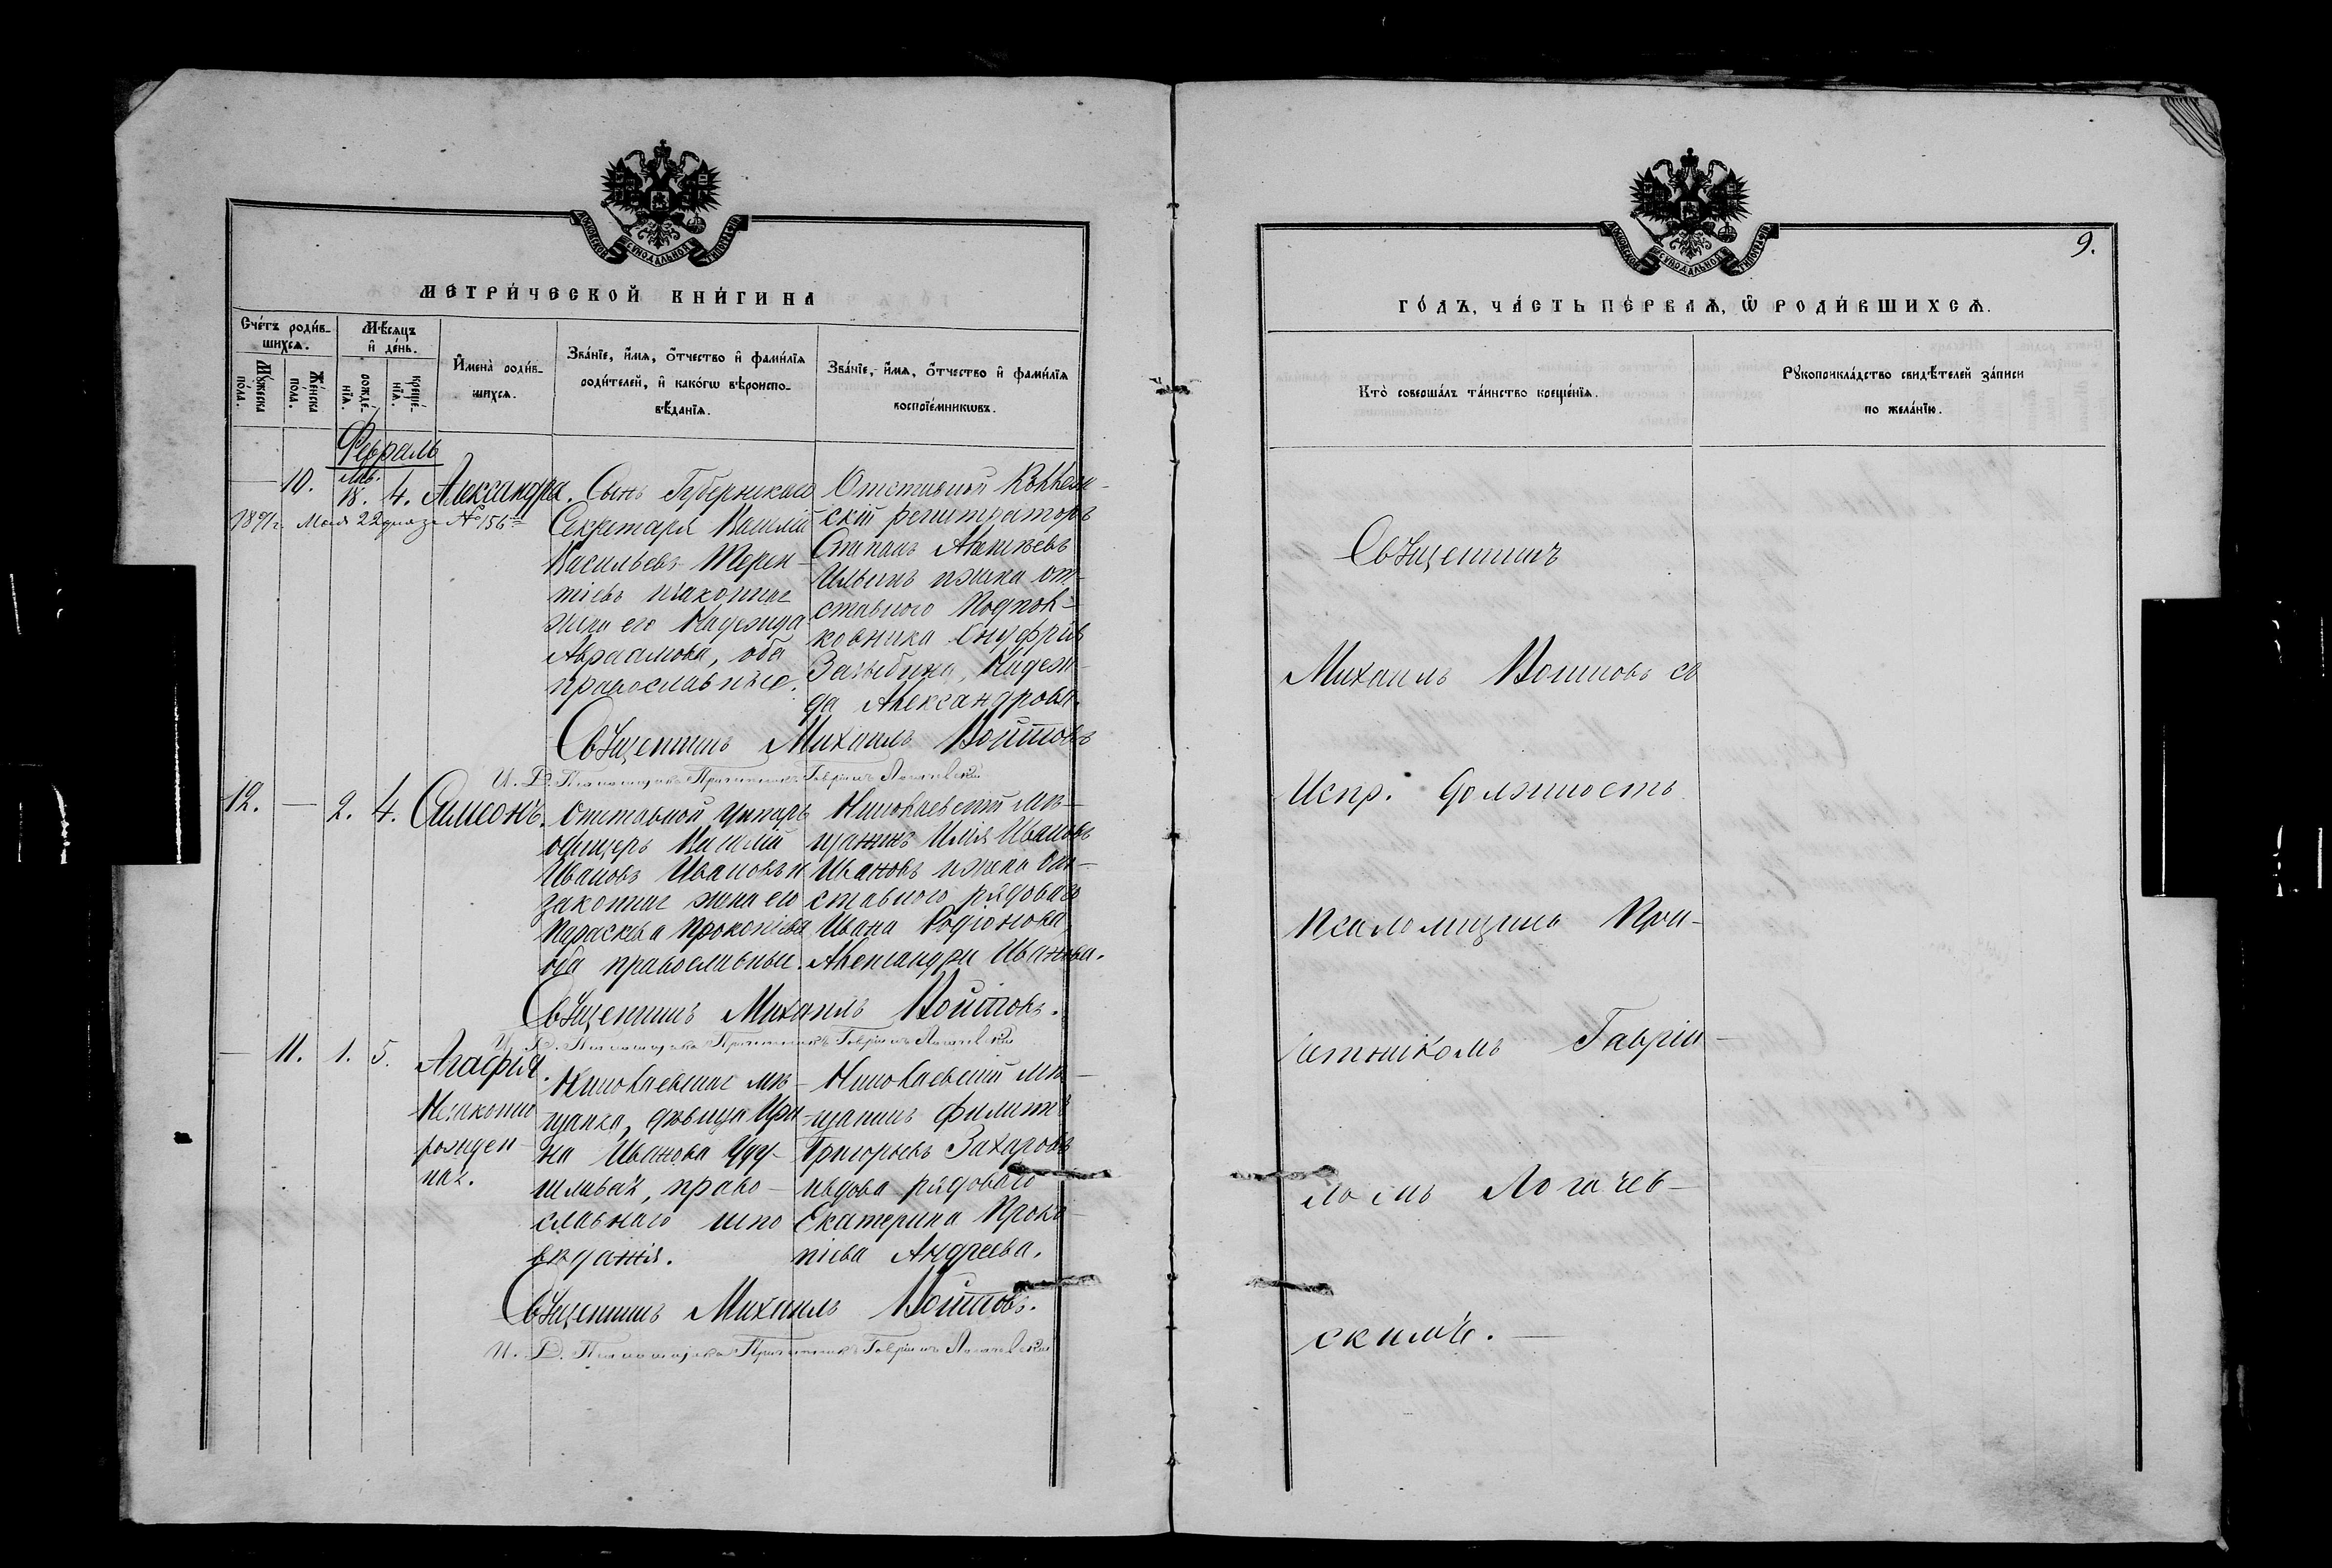 МОСКОВСКОЙ СУНОДАЛЬНОЙ ТИПОГРАФІИ
МЕТРИ́ЧЕСКОЙ КНИ́ГИ НА
Сче́тъ роди́в-
шихсѧ.
Мѣ́сѧцъ
и҆ де́нь.
Мꙋ́жеска
по́ла.
Же́нска
по́ла.
рожде́-
нїѧ.
креще́-
нїѧ.
И҆мена̀ роди́в-
шихсѧ.
Зва́нїе, и҆́мѧ, ѻ҆́тчество и҆ фами́лїѧ
роди́телей, и҆ како́гѡ вѣроиспо-
вѣ́данїѧ.
Зва́нїе, и҆́мѧ, ѻ҆́тчество и҆ фами́лїѧ
воспрїе́мникѡвъ.
Февраль
10. Янв. 18. 4. Александра.
1891 г. Мая 22 дня за № 156
Сынъ Губернскаго
Секретаря Василій
Васильевъ Терен-
тіевъ и законная
жена его Надежда
Авраамова, оба
православные.
Отставной Коллеж-
скій регистраторъ
Степанъ
Ильинъ и жена от-
ставного Подпол-
ковника Онуфрія
Надеж-
да Александрова.
Священникъ Михаилъ Войтовъ
И. Д. Псаломщика Причетникъ Гавріилъ Логачевскій
12. — 2. 4. Самсонъ.
Отставной Унтеръ
офицеръ Василій
Ивановъ Ивановъ и
законная жена его
Параскева Прокопіева
оба православные.
Николаевскій мѣ-
щанинъ Илія Ивановъ
Ивановъ и жена от-
ставного рядового
Ивана Родіонова
Александра Иванова.
Священникъ Михаилъ Войтовъ.
И. Д. Псаломщика Причетникъ Гавріилъ Логачевскій
— 11. 1. 5. Агафія.
Незаконно
рожден-
ная.
Николаевская мѣ-
щанка, дѣвица Ири-
на Иванова
православнаго испо-
вѣданія.
Николаевскій мѣ-
щанинъ Филиппъ
Григорьевъ Захаровъ
и вдова рядового
Екатерина Проко-
піева Андреева.
Священникъ Михаилъ Войтовъ.
И. Д. Псаломщика Причетникъ Гавріилъ Логачевскій
МОСКОВСКОЙ СУНОДАЛЬНОЙ ТИПОГРАФІИ
9.
ГО́ДЪ, ЧА́СТЬ ПЕ́РВАѦ, Ѡ҆ РОДИ́ВШИХСѦ.
Кто̀ соверша́лъ та́инство креще́нїѧ.
Рꙋкоприкла́дство свидѣ́телей за́писи
по жела́нїю.
Священникъ
Михаилъ Войтовъ съ
Испр. должность
Псаломщика При-
четникомъ Гаврiи-
ломъ Логачев-
скимъ. —